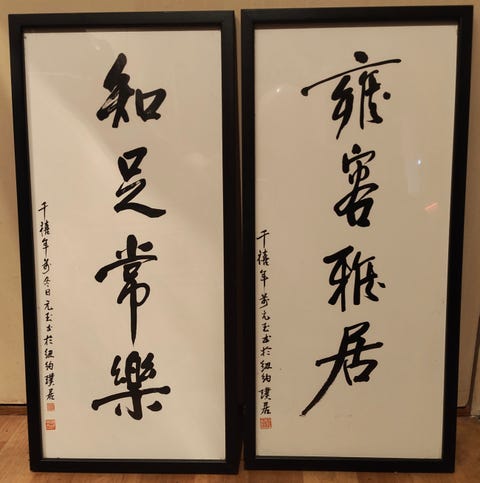 雍容雅居
千禧年元玉書於紐約璞居
知足常樂
千禧年冬日元玉書於紐約璞居